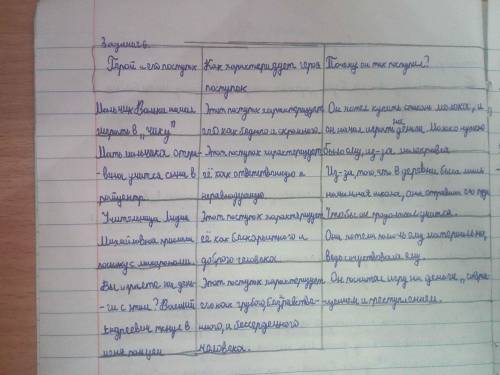 Задание 6.
Герой и его поступок | Как характеризует героя | Почему он так поступил?
поступок
Мальчик Вовка начал | Этот поступок характеризует | Он хотел купить стакан молока, и
играть в "чику" | его как бедного и скромного. | он начал играть на деньги. Молоко нужно
Мать мальчика отпра- | Этот поступок характеризует | было ему, из-за малокровия
вила учиться сына в | её как ответственную и | Из-за того, что в деревни была лишь
райцентр | неравнодушную | начальная школа, она отправила его туда
Учительница Лидия | Этот поступок характеризует | Чтобы он продолжал учиться.
Михайловна прислала | её как благородного и | Она хотела помочь ему материально,
посылку с макаронами. | доброго человека. | ведь сочувствовала ему.
Вы играете на день- | Этот поступок характеризует | Он посчитал игру на деньги "совра-
ги с этим? Василий | его как грубого, безнравствен- | щением и преступлением.
Андреевич ткнул в | ного, и бессердечного
меня пальцем | человека.